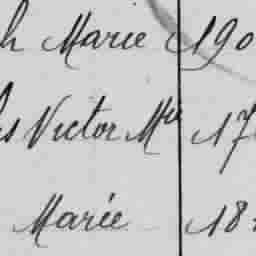 h Marie 190
es Victor Mie 17
Marie 18